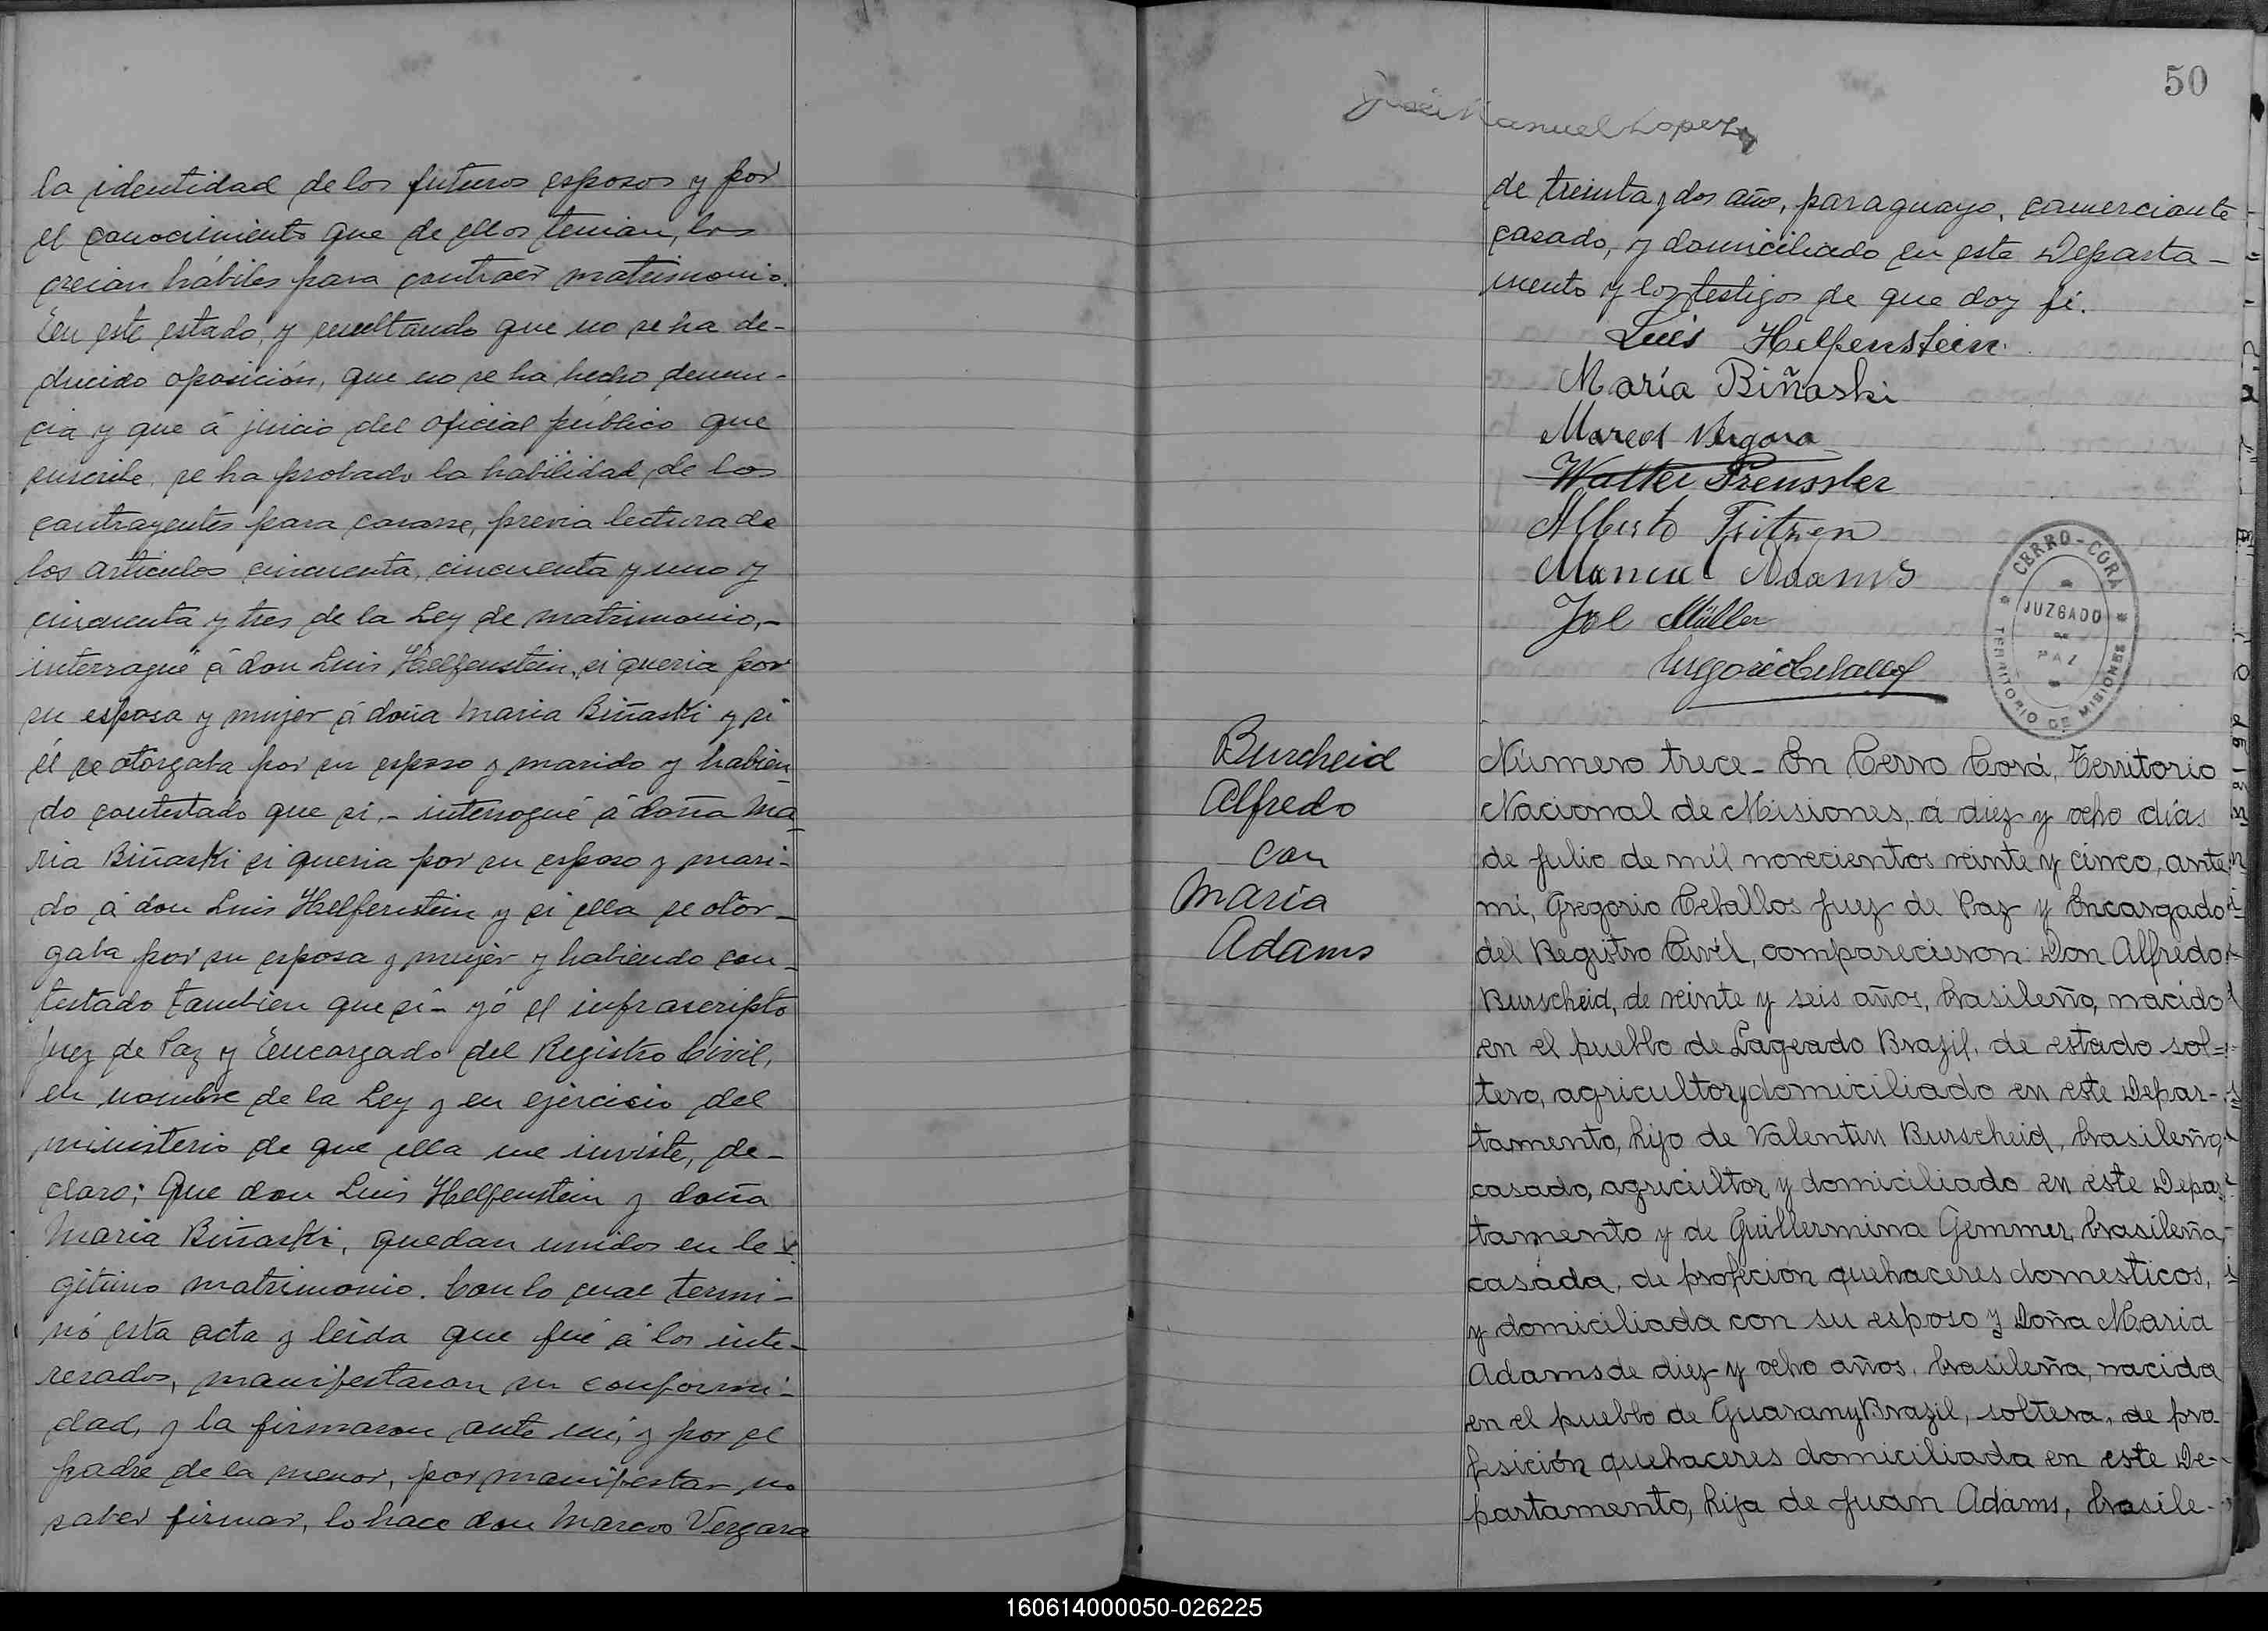 la identidad de los futuros esposos y por
el conocimiento que de ellos tenian, los
creian hábiles para contraer matrimonio.
En este estado, y resultando que no se ha de-
ducido oposición, que no se ha hecho denun-
cia y que á juicio del oficial público que
suscribe, se ha probado la habilidad de los
contrayentes para casarse, previa lectura de
los articulos cincuenta, cincuenta y uno y
cincuenta y tres de la Ley de matrimonio,-
interrogué á don Luis Helfenstein, si queria por
su esposa y mujer á doña Maria Biñaski y si
él se otorgaba por su esposo y marido y habien-
do contestado que si,- interrogué á doña Ma-
ria Biñaski si queria por su esposo y mari-
do á don Luis Helfenstein y si ella se otor-
gaba por su esposa y mujer y habiendo con-
testado tambien que si- yó el infrascripto
Juez de Paz y Encargado del Registro Civil,
en nombre de la Ley y en ejercicio del
ministerio de que ella me inviste, de-
claro; Que don Luis Helfenstein y doña
Maria Biñaski, quedan unidos en le-
gitimo matrimonio. Con lo cual termi-
nó esta acta y leida que fué á los inte-
resados, manifestaron su conformi-
dad, y la firmaron ante mi, y por el
padre de la menor, por manifestar no
saber firmar, lo hace don Marcos Vergara
50
José Manuel Lopez
de treinta y dos años, paraguayo, comerciante
casado, y domiciliado en este Departa-
mento y los testigos de que doy fé.
Luis Helfenstein.
María Biñaski
Marcos Vergara
Walter Preussler
Alberto Fritzen
Manuel Adams
Jol Müller
Gregorio Ceballos
CERRO-CORÁ
JUZGADO
DE
PAZ
TERRITORIO DE MISIONES
Burcheid
Alfredo
con
Maria
Adams
Número trece- En Cerro Corá, Territorio
Nacional de Misiones, á diez y ocho días
de Julio de mil novecientos veinte y cinco, ante
mi, Gregorio Ceballos Juez de Paz y Encargado
del Registro Civil, comparecieron: Don Alfredo
Burscheid, de veinte y seis años, brasileño, nacido
en el pueblo de Lageado Brazil, de estado sol=
tero, agricultor y domiciliado en este Depar-
tamento, hijo de Valentin Burscheid, brasileño,
casado, agricultor y domiciliado en este Depar-
tamento y de Guillermina Gemmer, brasileña,
casada, de profeción quehaceres domesticos,
y domiciliada con su esposo y Doña Maria
Adams de diez y ocho años, brasileña, nacida
en el pueblo de Guarany Brazil, soltera, de pro-
fesición quehaceres domiciliada en este De-
partamento, hija de Juan Adams, brasile-
160614000050-026225